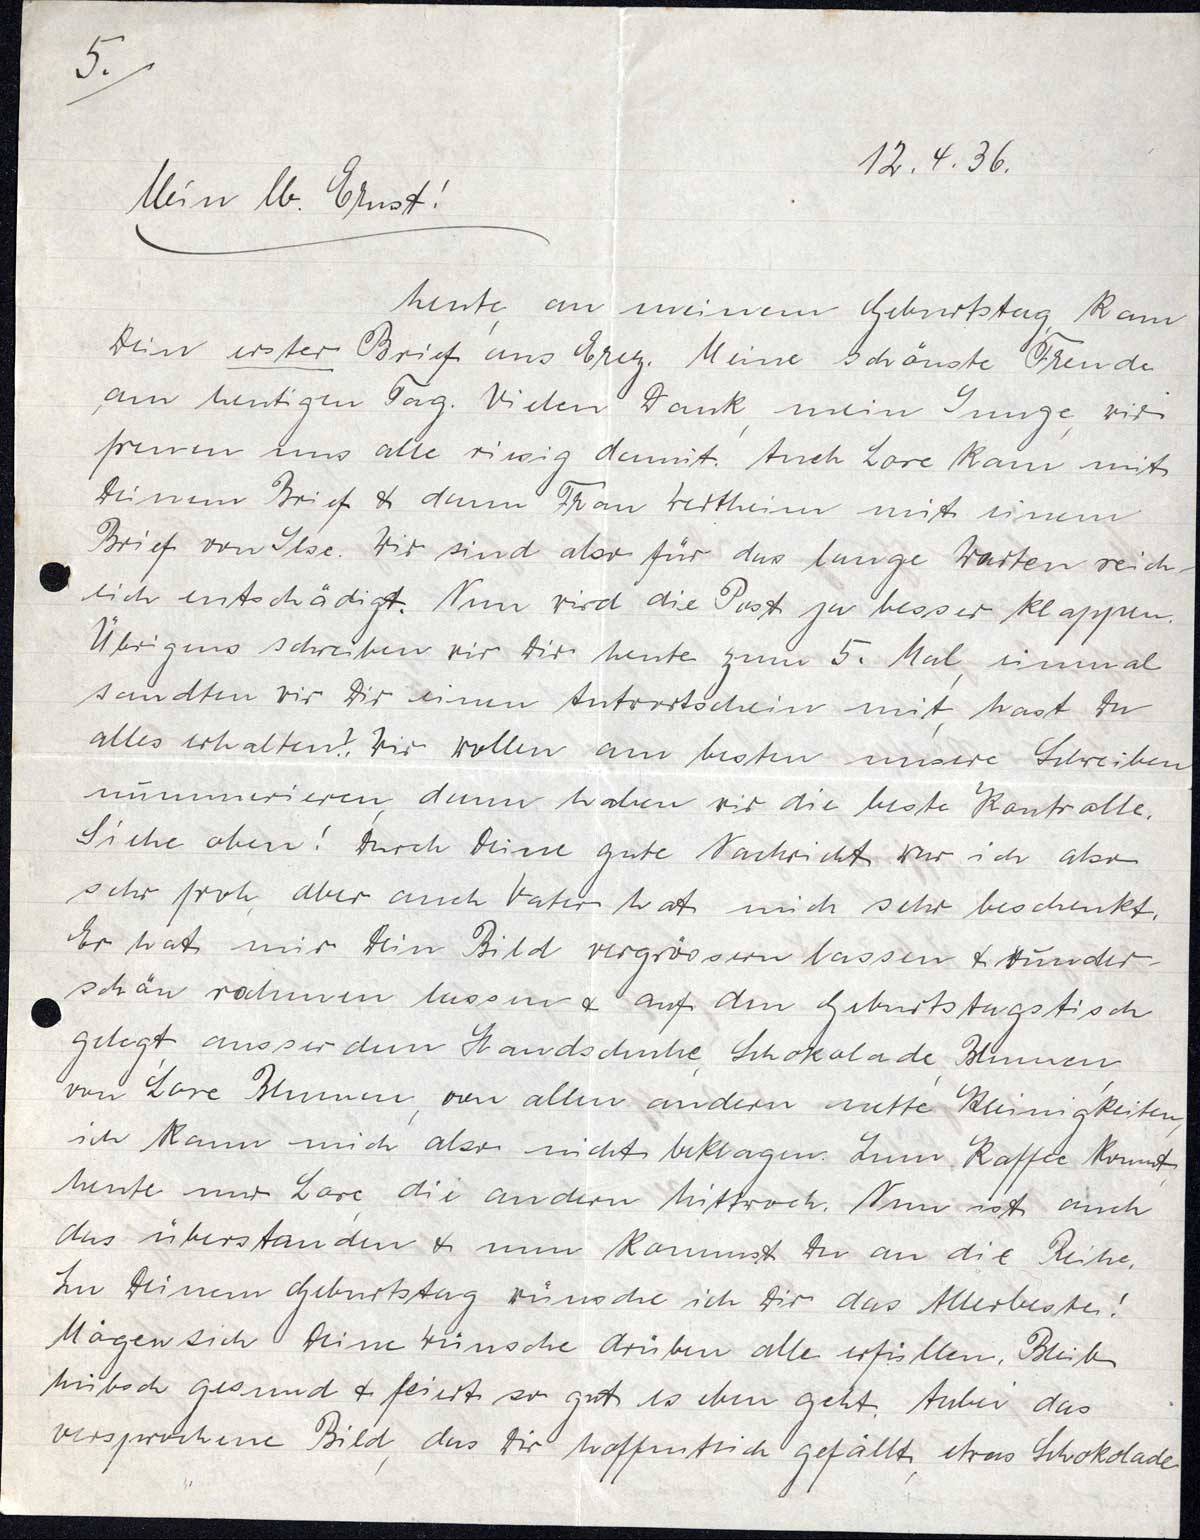 5.
12.4.36.
Mein lb. Ernst!
heute, an meinem Geburtstag, kam
Dein erster Brief aus Erez. Meine schönste Freude
am heutigen Tag. Vielen Dank, mein Junge, wir
freuen uns alle riesig damit. Auch Lore kam mit
Deinem Brief & dann Frau Wertheim mit einem
Brief von Ilse. Wir sind also für das lange Warten reich-
lich entschädigt. Nun wird die Post ja besser klappen.
Übrigens schreiben wir Dir heute zum 5. Mal, einmal
sandten wir Dir einen Antwortschein mit, hast Du
alles erhalten? Wir wollen am besten unsere Schreiben
nummerieren, dann haben wir die beste Kontrolle.
Siehe oben! Durch Deine gute Nachricht war ich also
sehr froh, aber auch Vater hat mich sehr beschenkt.
Er hat mir Dein Bild vergrössern lassen & wunder-
schön rahmen lassen & auf den Geburtstagstisch
gelegt, ausserdem Handschuhe, Schokolade, Blumen,
von Lore Blumen, von allen andern nette Kleinigkeiten,
ich kann mich also nicht beklagen. Zum Kaffee kommt
heute nur Lore, die andern Mittwoch. Nun ist auch
das überstanden & nun kommst Du an die Reihe.
Zu Deinem Geburtstag wünsche ich Dir das Allerbeste!
Mögen sich Deine Wünsche drüben alle erfüllen. Bleib
hübsch gesund & feiert so gut es eben geht. Anbei das
versprochene Bild, das Dir hoffentlich gefällt, etwas Schokolade